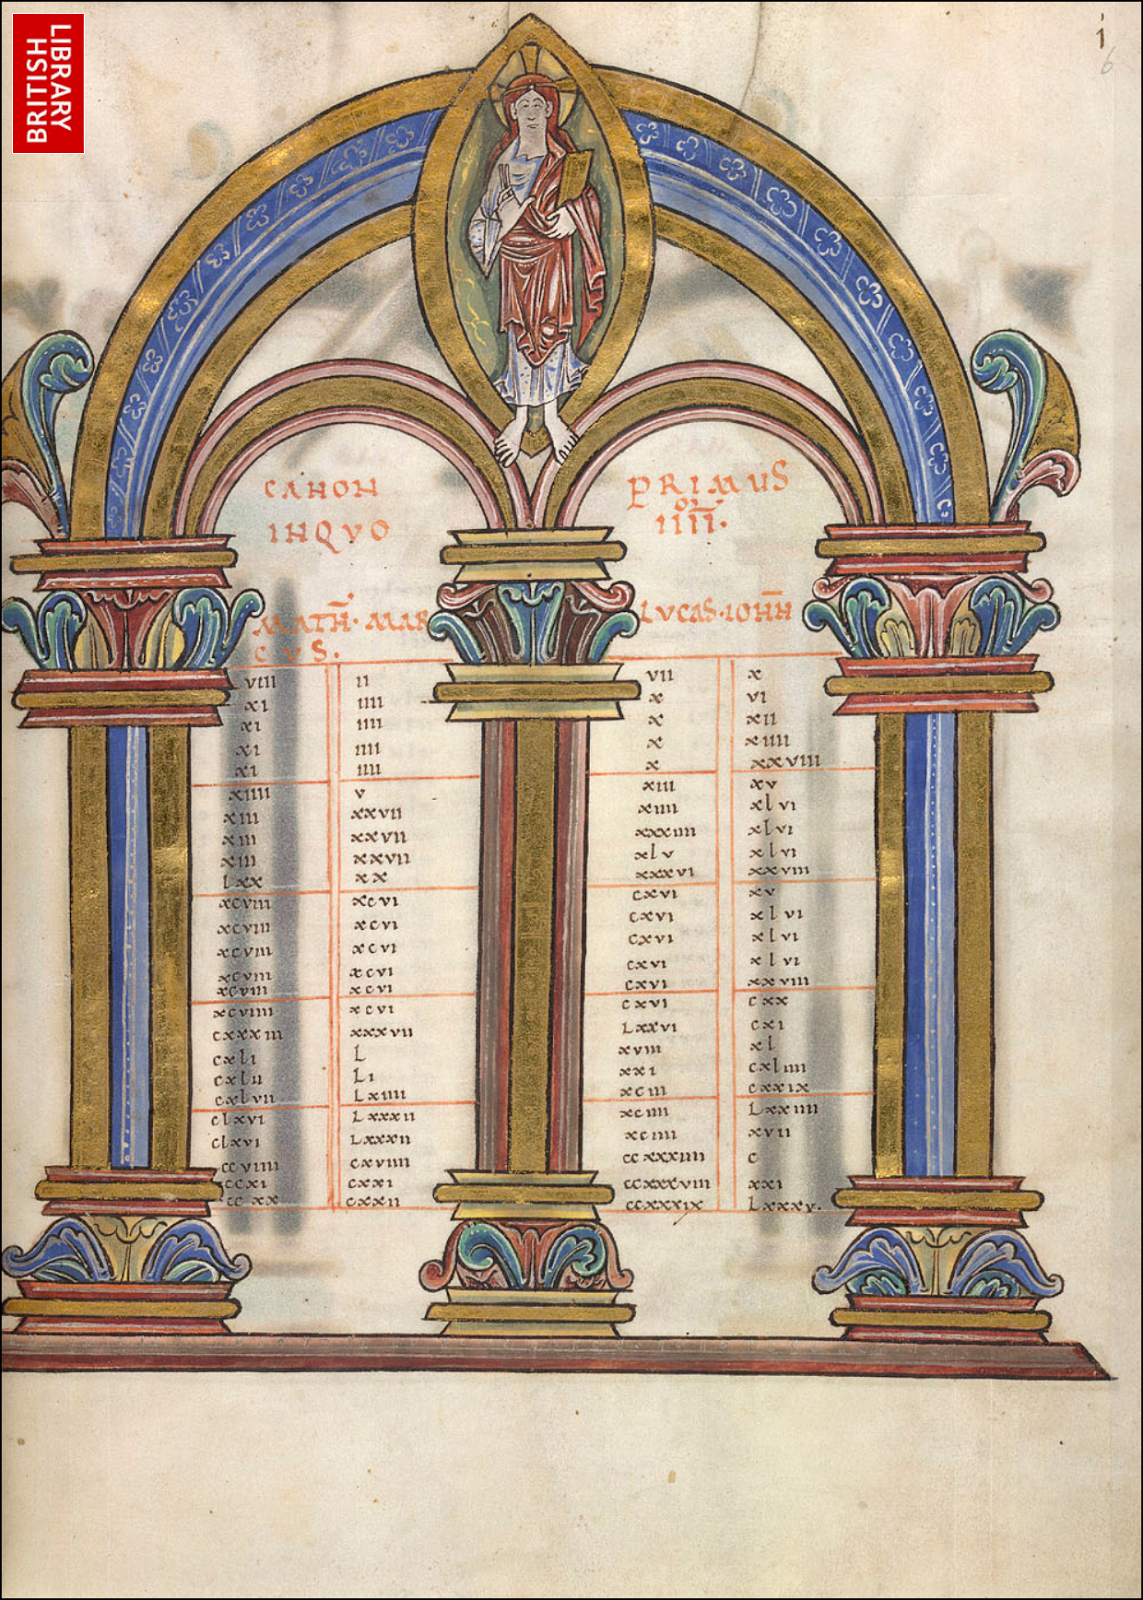 BRITISH
LIBRARY
i
6
CANON PRIMUS
INQVO IIII.
MATH. MAR LUCAS. IOHN
CUS.
viii ii vii x
xi iiii x vi
xi iiii x xii
xi iiii x xiiii
xi iiii x xxviii
xiiii v xiii xv
xiii xxvii xiiii xlvi
xiii xxvii xxxiiii xlvi
xiii xxvii xlv xlvi
lxx xx xxxvi xxviii
xcviii xcvi cxvi xv
xcviii xcvi cxvi xlvi
xcviii xcvi cxvi xlvi
xcviii xcvi cxvi xlvi
xcviii xcvi cxvi xxviii
xcviiii xcvi cxvi cxx
cxxxiii xxxvii Lxxvi cxi
cxli L xviii xl
cxlii Li xxi cxliiii
cxlvii Lxiiii xciii cxxix
clxvi Lxxxii xciiii Lxxiiii
clxvi Lxxxii xciiii xvii
ccviiii cxviiii ccxxxiiii c
ccxi cxxi ccxxxviii xxi
ccxx cxxii ccxxxix Lxxxv.